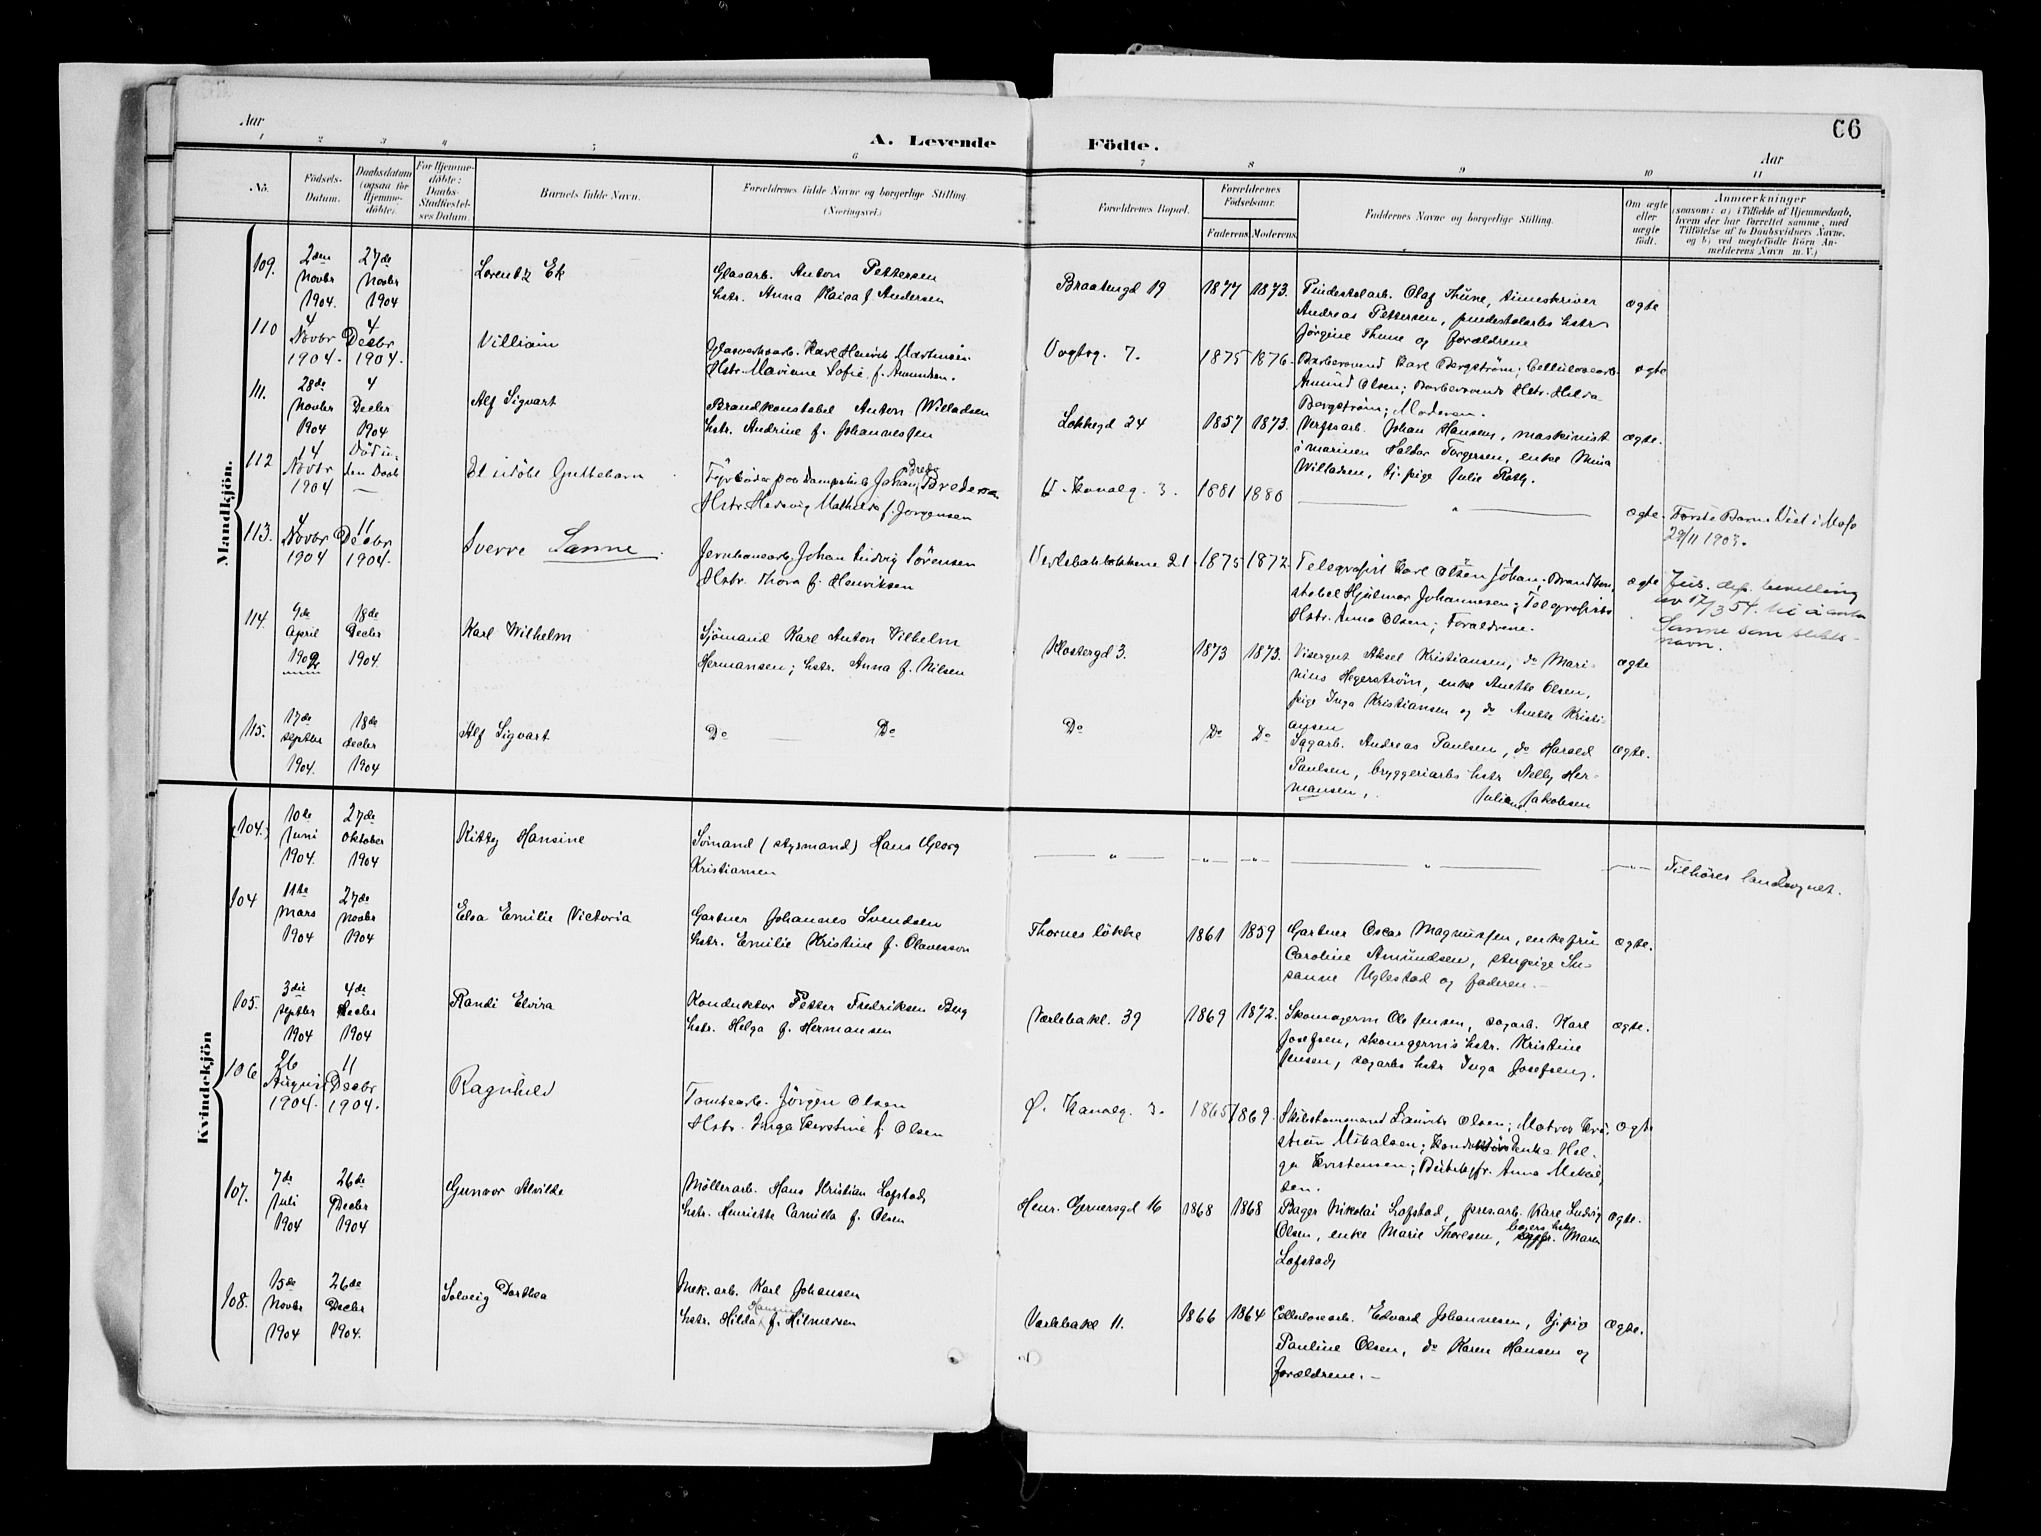 Aar
A. Levende
Födte.
Aar
66
1 2 3 4 5 6 7 8 9 10 11
No.
Födsels-Datum.
Daabsdatum (ogsaa for Hjemmedöbte).
For Hjemmedöbte: Daabs-Stadfæstelses Datum.
Barnets fulde Navn.
Forældrenes fulde Navne og borgerlige Stilling. (Næringsvei.)
Forældrenes Bopæl.
Forældrenes Födselsaar.
Faderens. Moderens.
Faddernes Navne og borgerlige Stilling.
Om ægte eller uægte födt.
Anmærkninger
(saasom: a) i Tilfælde af Hjemmedaab, hvem der har forrettet samme, med Tilföielse af to Daabsvidners Navne, og b) ved uægtefödte Börn Anmelderens Navn m. V.)
Mandkjön.
109. 2den Novbr 1904. 27de Novbr 1904
Lorentz Ek
Glasarb. Anton Pettersen
hstr. Anna Kaisa f. Andersen
Braatengd 19 1877 1873.
Pindestolarb. Olaf Thune, timeskriver
Andreas Pettersen, pindestolarbs hstr
Jörgine Thune og forældrene
ægte
110 4 Novbr 1904. 4 Decbr 1904.
William
Glasverksarb. Karl Henrik Martinsen
Hstr. Mariane Sofie f. Amundsen.
Vogtsg. 7. 1875 1876.
Barbersvend Karl Bergström; Cellulosearb
Amund Olsen; Barbersvends Hstr. Hilda
Bergström; Moderen.
ægte
111. 28de Novbr 1904 4 Decbr 1904
Alf Sigvart
Brandkonstabel Anton Willadsen
hstr. Andrine f. Johannessen
Lökkegd 24 1857 1873.
Verftsarb. Johan Hansen, maskinist
i marinen Haldor Torgersen, enke Mina
Willadsen, tj. pige Julie Roth.
ægte.
112 14 Novbr 1904 Död uden Daab
Et udöbt Guttebarn
Fyrböder paa Dampskib Johan Brede Bredesen
Hstr. Hedevig Mathilde f. Jorgensen
V. Kanalg. 3. 1881 1880
ægte.
Første Barn. Viet i Moss
29/11 1903.
113. 4 Novbr 1904 11 Decbr 1904.
Sverre Sanne.
Jernbanearb. Johan Ludvig Sörensen
Hstr. Thora f. Henriksen
Verlebakløkkene 21. 1875 1872.
Telegrafist Karl Olsen Johan. Brandkon
stabel Hjalmar Johannesen; Telegrafists
Hstr. Anna Olsen; Forældrene.
ægte
Jus. dep. bevilling
av 17/3 54. til å anta
Sanne som slekts-
navn.
114. 9de April 1902 18de Decbr 1904.
Karl Wilhelm
Sjömand Karl Anton Vilhelm
Hermansen; hstr. Anna f. Nilsen
Klostergd 3. 1873 1873.
Visergut Aksel Kristiansen, do Mari-
nius Hegerström, enke Anette Olsen,
pige Inga Kristiansen og do Anette Kristi-
ansen
ægte
115. 17de Septbr 1904. 18de decbr 1904
Alf Sigvart
Do — Do
Do Do Do
Sagarb. Andreas Paulsen, do Harald
Paulsen, bryggeriarbs hstr Nelly Her-
mansen, Juliane Jakobsen
ægte.
Kvindekjön
(104.) 10de Juni 1904. 27de Oktober 1904
Kitty Hansine
Sømand (styrmand) Hans Georg
Kristiansen
Tilhörer landsognet.
104 11te Mars 1904 27de Novbr 1904
Elsa Emilie Victoria
Gartner Johannes Svendsen
hstr. Emilie Kristine f. Olavesson
Thornes løkke 1861 1859
Gartner Oscar Magnussen, enkefru
Caroline Amundsen, stupige Su-
sanne Uglestad og faderen.
ægte.
105. 3die Septbr 1904 4de decbr 1904
Randi Elvira
Konduktör Petter Fredriksen Berg
hstr. Helga f. Hermansen
Værlebakl. 39 1869 1872.
Skomagerm Ole Jensen, sagarb. Karl
Josefsen, skomgermrs hstr. Kristine
Jensen, sagarbs hstr Inga Josefsen.
ægte.
106 26 August 1904. 11 Decbr 1904.
Ragnhild
Tomtearb. Jörgen Olsen
Hstr. Inga Kerstine f. Olsen
Ø. Kanalg. 3. 1865 1869.
Skibstømmermand Laurits Olsen; Matros Kri-
stian Mikalsen; enke Hel-
ga Kristensen; Butikjfr. Anna Mikal-
sen.
ægte
107. 7de Juli 1904 26de Decbr 1904
Gunvor Alvilde
Möllerarb. Hans Kristian Lofstad,
hstr. Henriette Camilla f. Olsen
Henr. Gernersgd 16 1868 1868
Bager Nikolai Lofstad, pres.arb. Karl Ludvig
Olsen, enke Marie Thoresen, bagers hstr Maren
Lofstad,
ægte.
108. 15de Novbr 1904 26de Decbr 1904.
Solveig Dorthea
Mek. arb. Karl Johansen
hstr. Hilda Hansine f. Hilmersen
Værlebakl 11. 1866 1864
Cellulosearb. Edvard Johannesen, tj. pige
Pauline Olsen, do Karen Hansen og
forældrene.
ægte.